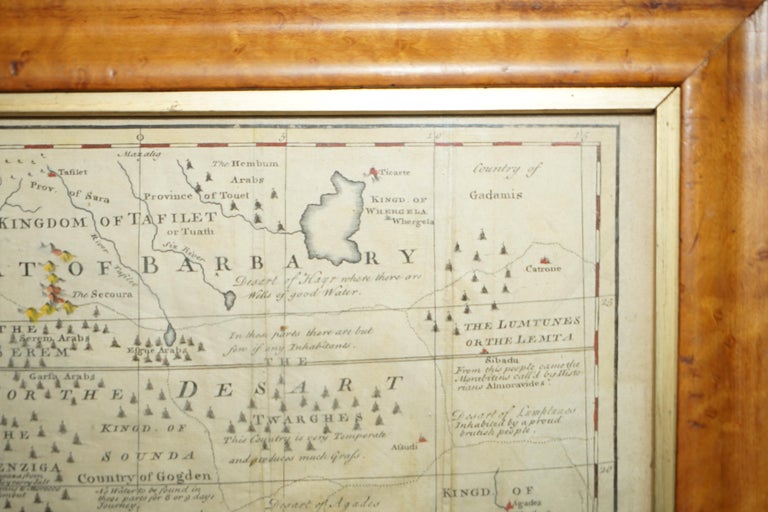 0 5 10 15
Mazalig
Tafilet
The Hembum
Arabs
Ticarte
Country of
Gadamis
Prov. of Sara
Province of Touet
or Tuath
KINGD. OF
WHERGELA
Whergela
KINGDOM OF TAFILET
River Tafilet
Sin River
AT OF BARBARY
Desart of Hayr where there are
Wells of good Water.
Catrone
The Secoura
25
THE
Serem Arabs
SEREM
Esgue Arabs
In these parts there are but
few if any Inhabitants.
THE LUMTUNES
OR THE LEMTA
THE
Sibadu
From this people came the
Morabites call'd by Histo
rians Almoravides.
Garfa Arabs
OR THE DESART
TWARGHES
KINGD. OF
SOUNDA
THE
This Country is very Temperate
and produces much Grass.
Asiudi
Desart of Lempluns
Inhabited by a proud
brutish people.
ENZIGA
Country of Gogden
20
No Water to be found in
these parts for 8 or 9 days
Journey.
Desart of Agades
KINGD. OF
Agades